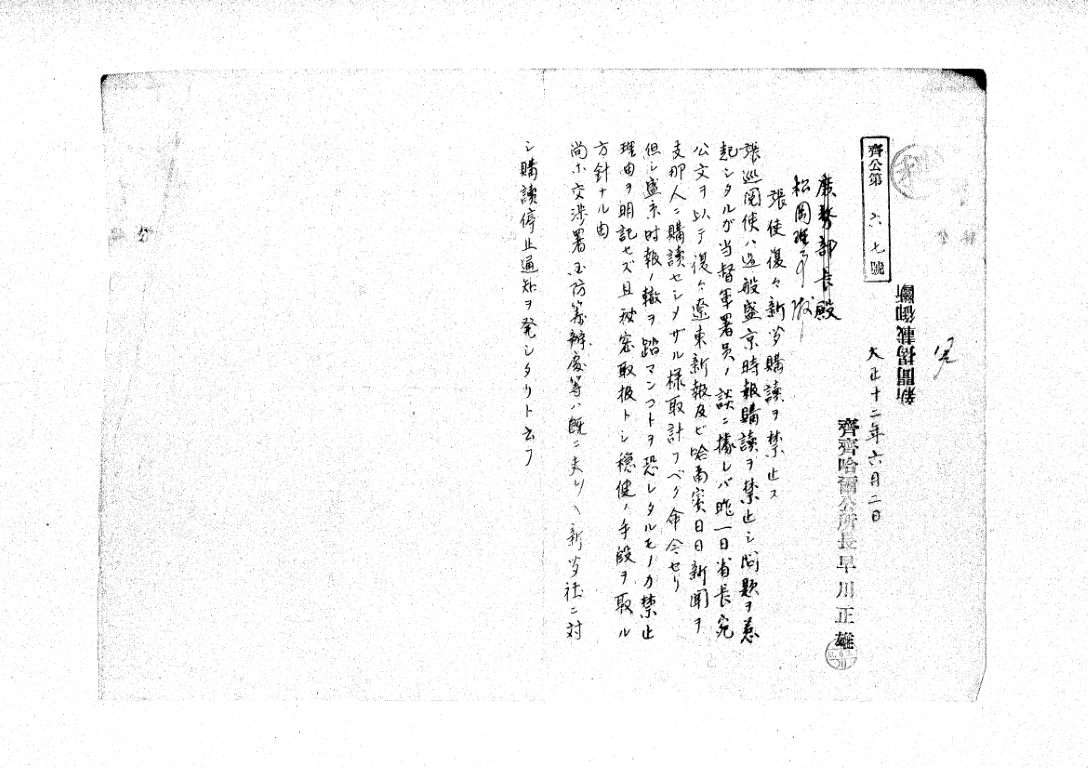 新聞掲載御断
齊公第六七號
大正十二年六月二日
齊齊哈爾公所長早川正雄
庶務部長殿
松岡理事殿
張使復々新聞購讀ヲ禁止ス
張巡閲使ハ過般盛京時報購讀ヲ禁止シ問題ヲ惹
起シタルガ当督軍署員ノ談ニ據レバ昨一日省長宛
公文ヲ以テ復々遼東新報及ビ哈爾賓日日新聞ヲ
支那人ニ購讀セシメザル様取計フベク命令セリ
但シ盛京時報ノ轍ヲ踏マンコトヲ恐レタルモノカ禁止
理由ヲ明記セズ且秘密取扱トシ穏健ノ手段ヲ取ル
方針ナル由
尚ホ交渉署国防籌辦處等ハ既ニ夫々新聞社ニ対
シ購讀停止通知ヲ発シタリト云フ